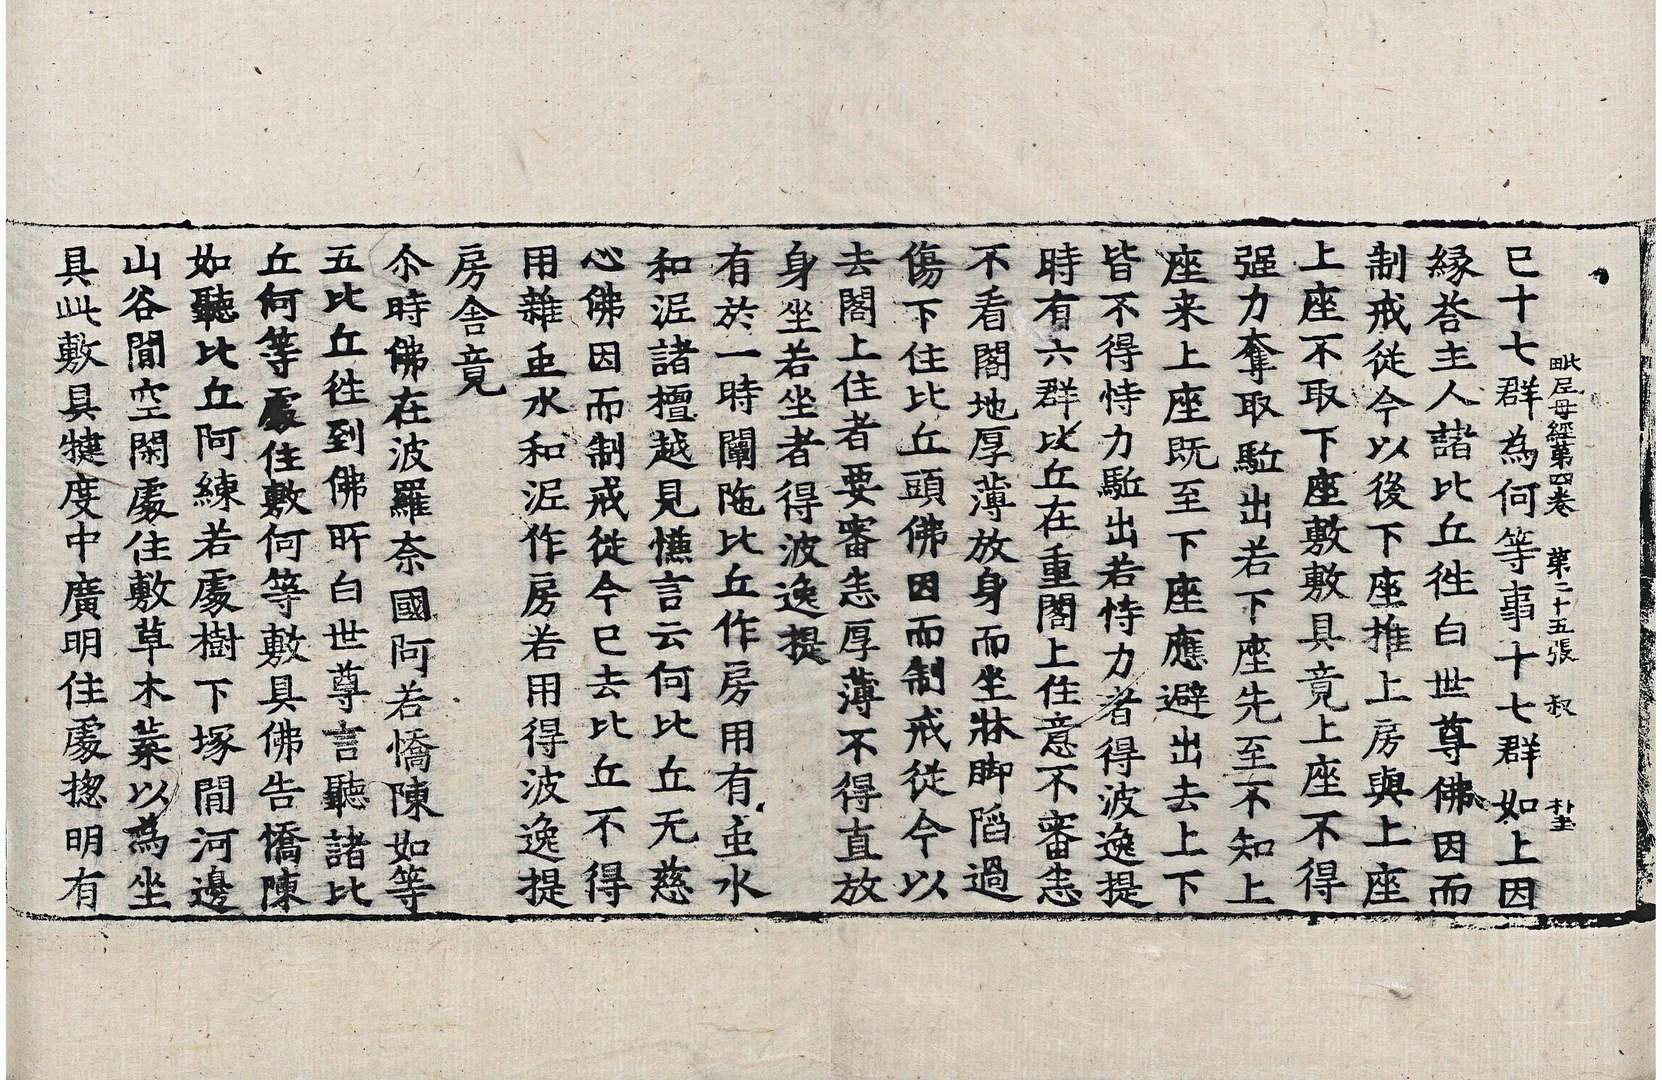 毗尼母經第四卷 第二十五張 叔 朴坒
已十七群為何等事十七群如上因
縁荅主人諸比丘徃白世尊佛因而
制戒從今以後下座推上房與上座
上座不取下座敷敷具竟上座不得
强力奪取駈出若下座先至不知上
座来上座既至下座應避出去上下
皆不得恃力駈出若恃力者得波逸提
時有六群比丘在重閣上住意不審悉
不看閣地厚薄放身而坐牀脚䧟過
傷下住比丘頭佛因而制戒從今以
去閣上住者要審悉厚薄不得直放
身坐若坐者得波逸提
有於一時闡陁比丘作房用有虫水
和泥諸檀越見慊言云何比丘无慈
心佛因而制戒従今已去比丘不得
用雜虫水和泥作房若用得波逸提
房舍竟
尒時佛在波羅奈國阿若憍陳如等
五比丘徃到佛所白世尊言聽諸比
丘何等處住敷何等敷具佛告憍陳
如聽比丘阿練若處樹下塚間河邊
山谷間空閑處住敷草木葉以為坐
具此敷具犍度中廣明住處揔明有